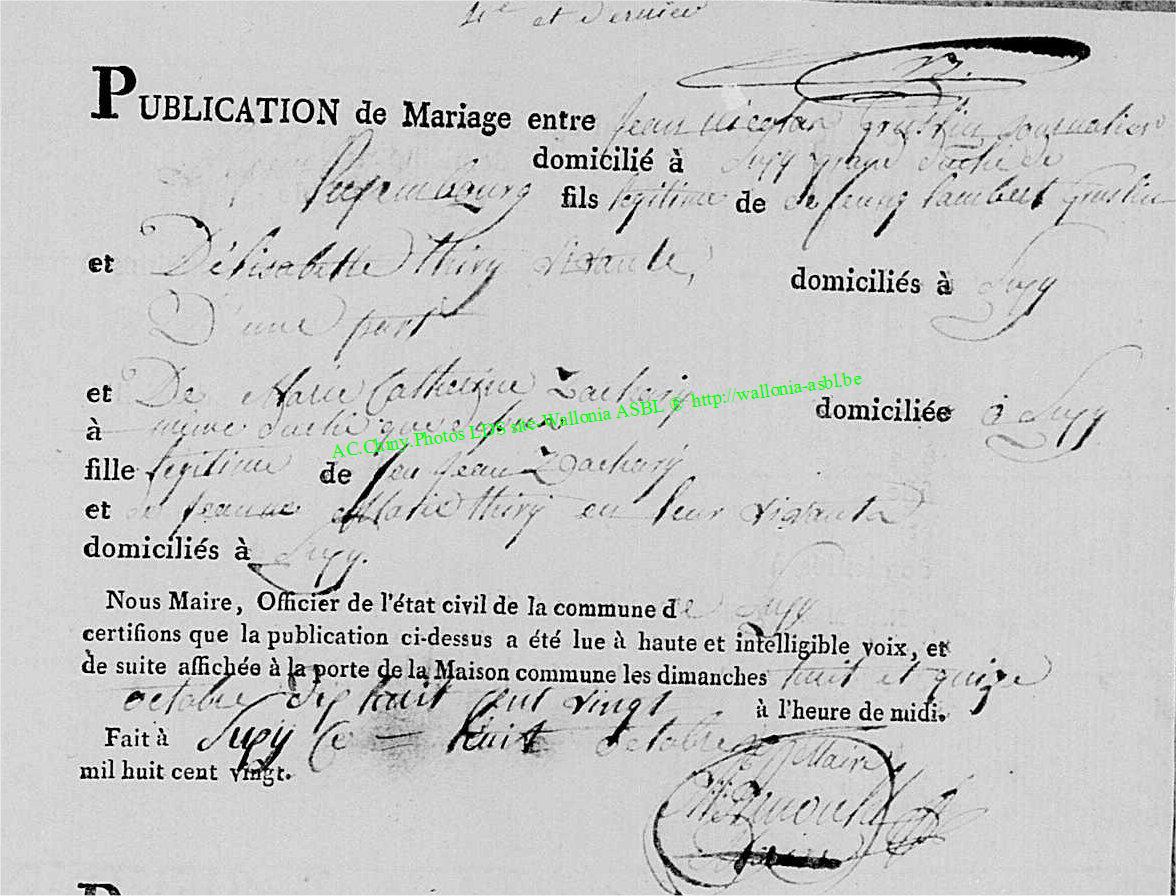 4e et dernier
PUBLICATION de Mariage entre Jean nicolas Gruslin Journalier
domicilié à Suxy grand duché de
Luxembourg fils legitime de de feung Lambert Gruslin
et D'élisabette thiry vivante, domiciliés à Suxy
D'une part
et De Marie Catherine Zachary domiciliée à Suxy
à même duché que
AC.Chiny.Photos LDS site Wallonia ASBL ® http://wallonia-asbl.be
fille legitime de feu Jean Zachary
et de jeanne Marie thiry en leur vivant
domiciliés à Suxy.
Nous Maire, Officier de l'état civil de la commune de Suxy
certifions que la publication ci-dessus a été lue à haute et intelligible voix, et
de suite affichée à la porte de la Maison commune les dimanches huit et quinze
octobre dix huit cent vingt à l'heure de midi.
Fait à Suxy Ce huit octobre
mil huit cent vingt. Le Maire